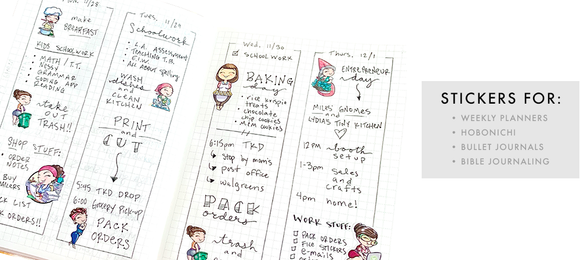 11/28
make
BREAKFAST
KIDS SCHOOLWORK
• MATH / T.T.
• BOOKS
• GRAMMAR
• CODING APP
• READING
take
OUT
TRASH!!
SHOP STUFF:
• ORDER
NOTES
BUY
LIST
ORDERS!!
Tues. 11/29
Schoolwork
• L.A. ASSESSMENT
• TEACHING T.R.
• E.I.W.
• All About Spelling
WASH
dishes
and
CLEAN
KITCHEN
PRINT
and
CUT
5:45 TKD DROP
6:00 Grocery Pickup
PACK
ORDERS
Wed. 11/30
SCHOOL WORK
BAKING
day
• rice krispie
treats
• chocolate
chip cookies
• M&M cookies
6:15pm TKD
↳ stop by mom's
↳ post office
↳ walgreens
PACK
orders
trash
and
Thurs. 12/1
ENTREPRENEUR
day
MILES' GNOMES
and
LYDIA'S TINY KITCHEN
12pm booth
setup
1-3pm sales
and
crafts
4pm home!
WORK STUFF:
PACK ORDERS
FILE STICKERS
e-mails
STICKERS FOR:
• WEEKLY PLANNERS
• HOBONICHI
• BULLET JOURNALS
• BIBLE JOURNALING